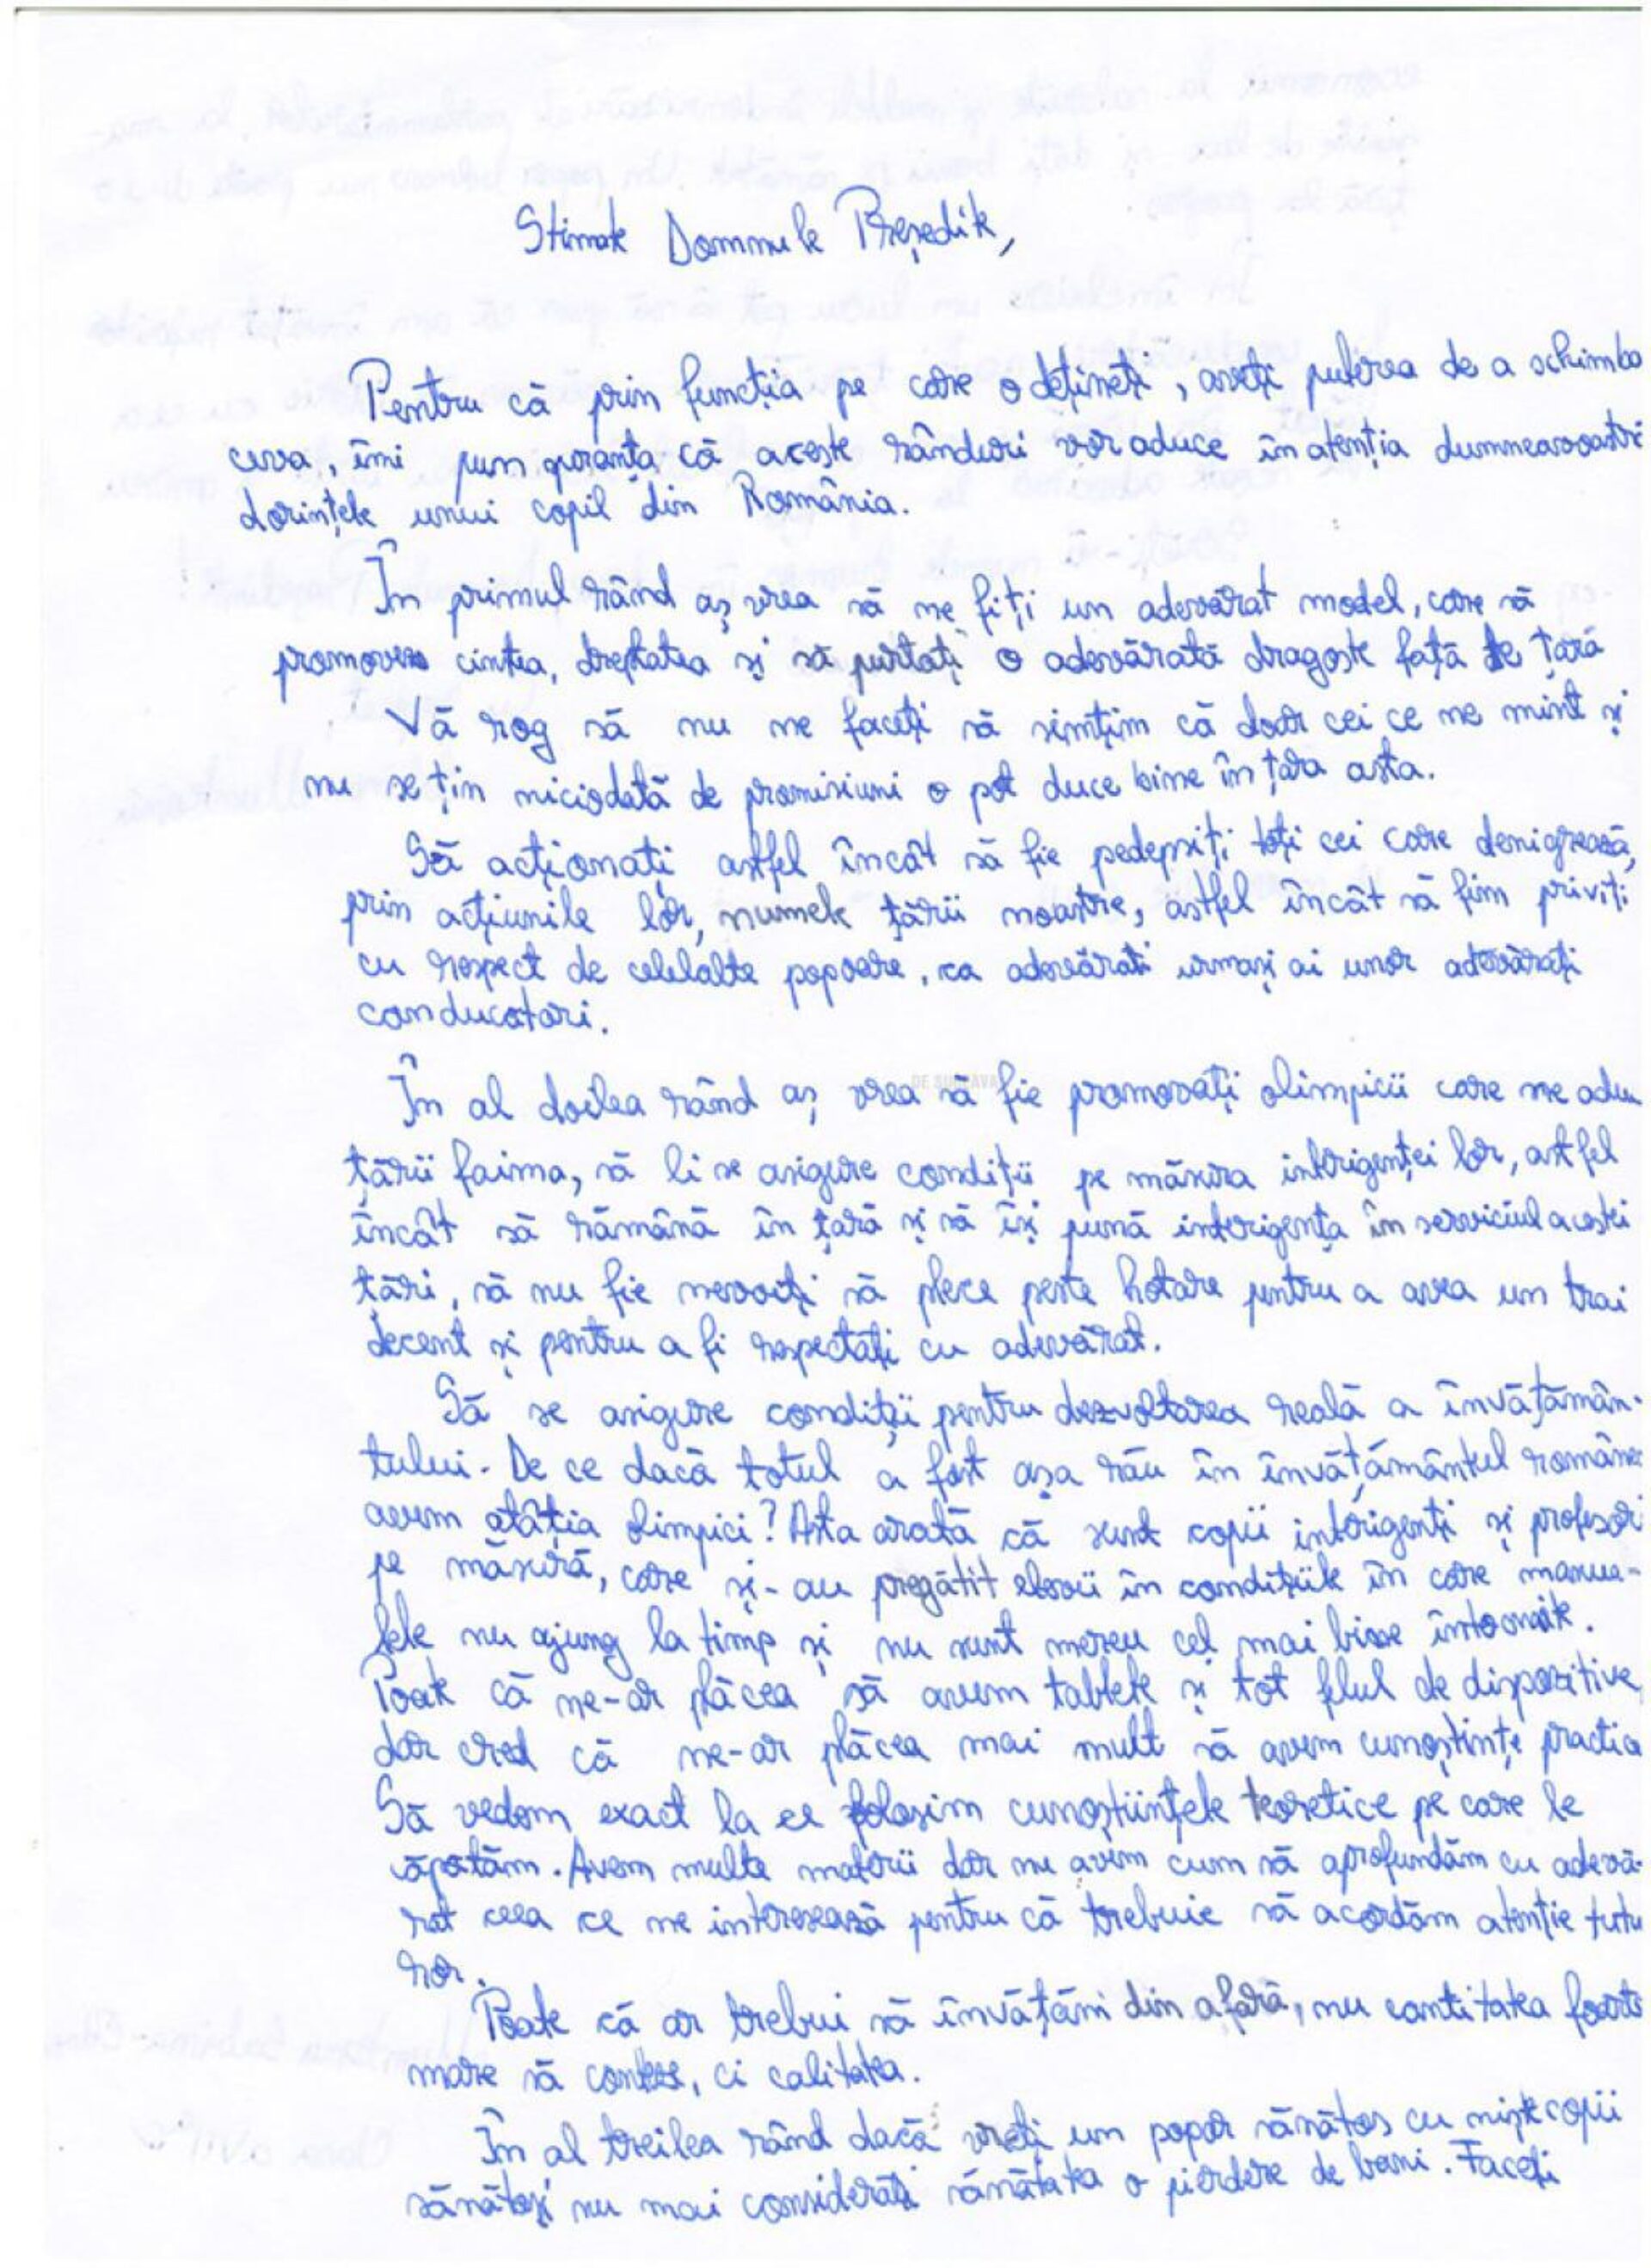 Stimate Domnule Președite,
Pentru că prin funcția pe care o dețineți, aveți puterea de a schimba
ceva, îmi pun speranța că aceste rânduri vor aduce în atenția dumneavoastră
dorințele unui copil din România.
În primul rând aș vrea să ne fiți un adevărat model, care să
promoveze cinstea, dreptatea și să purtați o adevărată dragoste față de țară
Vă rog să nu ne faceți să simțim că doar cei ce ne mint și
nu se țin niciodată de promisiuni o pot duce bine în țara asta.
Să acționați astfel încât să fie pedepsiți toți cei care denigrează,
prin acțiunile lor, numele țării noastre, astfel încât să fim priviți
cu respect de celelalte popoare, ca adevărati urmași ai unor adevărați
conducatori.
În al doilea rând aș vrea să fie promovați olimpicii care ne aduc
țării faima, să li se asigure condiții pe măsura inteligenței lor, astfel
încât să rămână în țară și să își pună inteligența în serviciul acestei
țări, să nu fie nevoiți să plece peste hotare pentru a avea un trai
decent și pentru a fi respectați cu adevărat.
Să se asigure condiții pentru dezvoltarea reală a învățămân-
tului. De ce dacă totul a fost așa rău în învățământul românes
avem atâția olimpici? Asta arată că sunt copii inteligenți și profesori
pe măsură, care și-au pregătit elevii în condițiile în care manua-
lele nu ajung la timp și nu sunt mereu cel mai bine întocmite.
Poate că ne-ar plăcea să avem tablete și tot felul de dispozitive,
dar cred că ne-ar plăcea mai mult să avem cunoștințe practice
Să vedem exact la ce folosim cunoștiințele teoretice pe care le
căpătăm. Avem multe materii dar nu avem cum să aprofundăm cu adevă-
rat ceea ce ne interesează pentru că trebuie să acordăm atenție tutu
ror.
Poate că ar trebui să învățăm din afară, nu cantitatea foarte
mare să conteze, ci calitatea.
În al treilea rând dacă vreți un popor sănătos cu niște copii
sănătoși nu mai considerați sănătatea o pierdere de bani. Faceți